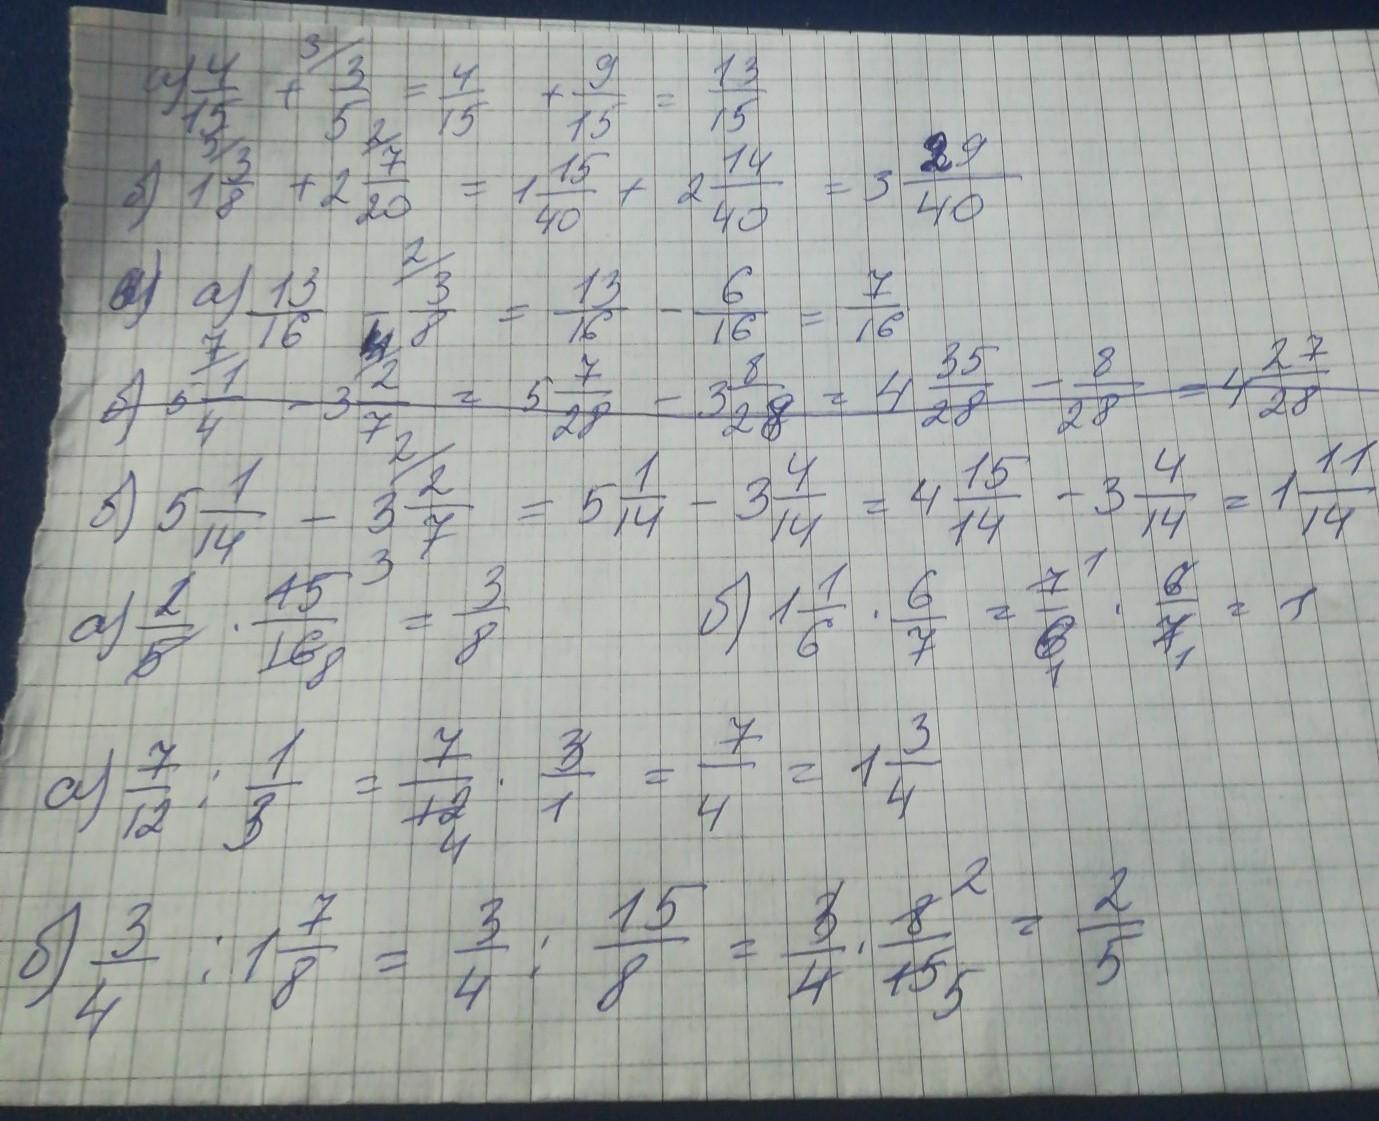 а) 4/15 + 3/5 = 4/15 + 9/15 = 13/15
б) 1 3/8 + 2 7/20 = 1 15/40 + 2 14/40 = 3 29/40
а) 13/16 - 3/8 = 13/16 - 6/16 = 7/16
б) 5 1/4 - 3 2/7 = 5 7/28 - 3 8/28 = 4 35/28 - 8/28 = 4 27/28
б) 5 1/14 - 3 2/7 = 5 1/14 - 3 4/14 = 4 15/14 - 3 4/14 = 1 11/14
а) 2/5 · 15/16 = 3/8 б) 1 1/6 · 6/7 = 7/6 · 6/7 = 1
а) 7/12 : 1/3 = 7/12 · 3/1 = 7/4 = 1 3/4
б) 3/4 : 1 7/8 = 3/4 : 15/8 = 3/4 · 8/15 = 2/5